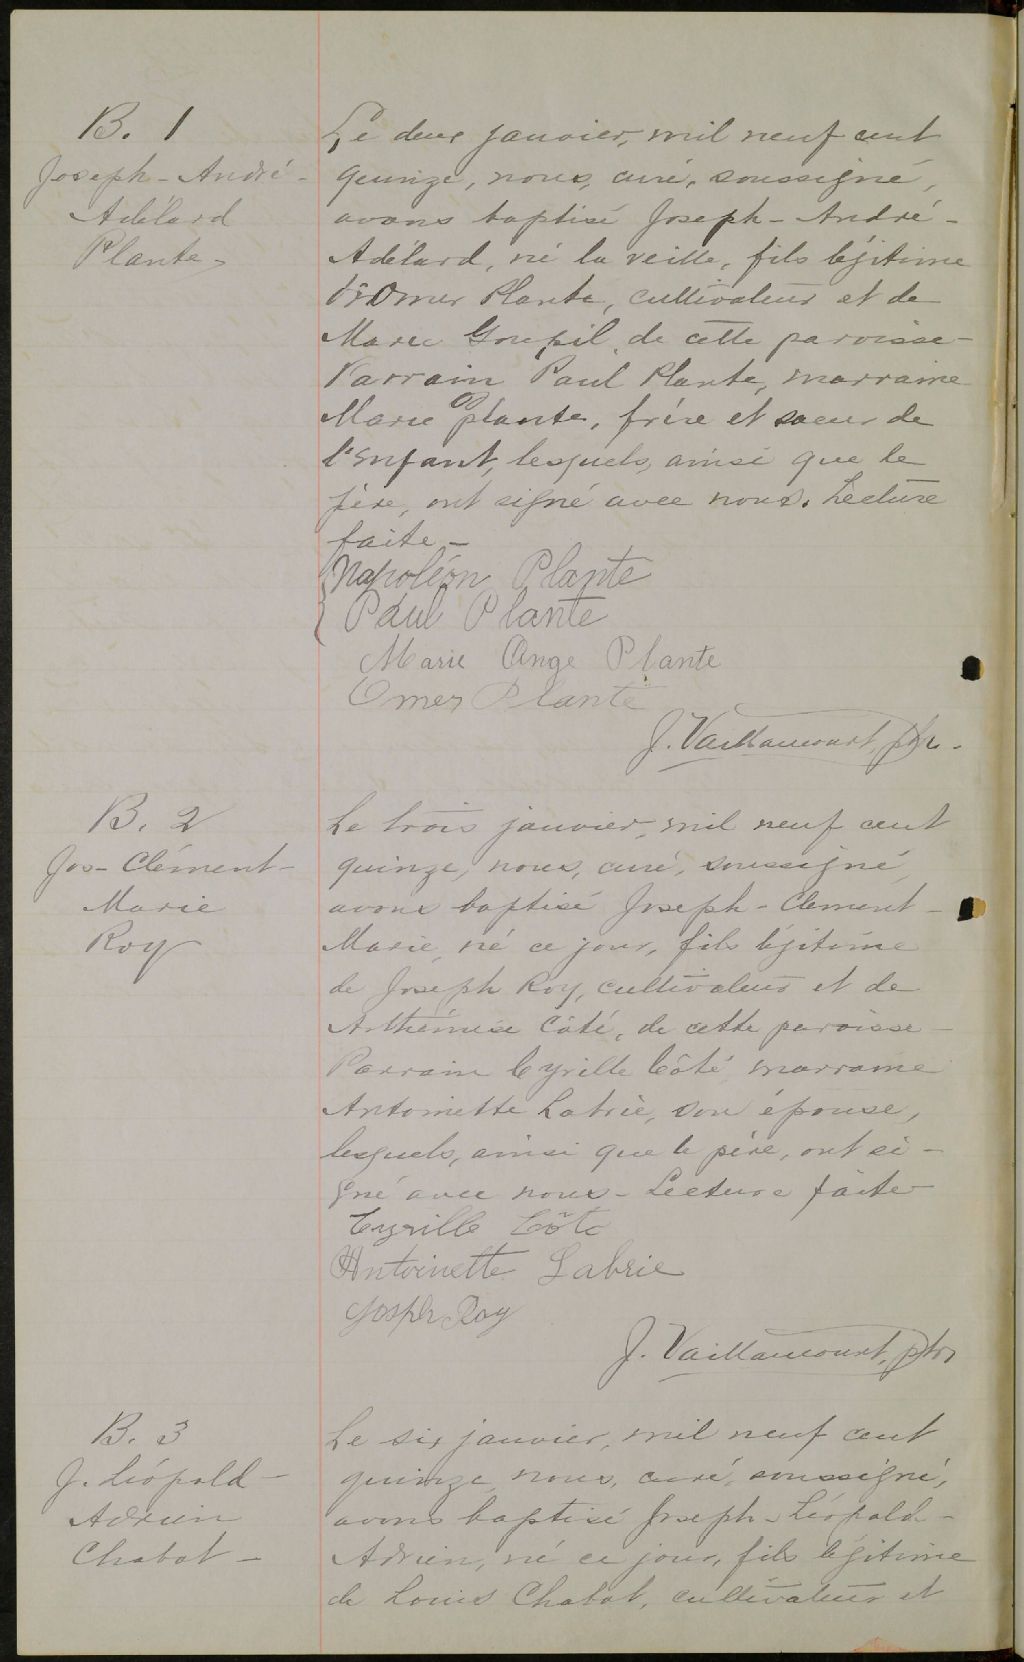 B. 1
Joseph-André-
Adélard
Plante-
Le deux janvier, mil neuf cent
quinze, nous, curé, soussigné,
avons baptisé Joseph-André-
Adélard, né la veille, fils légitime
Omer Plante, cultivateur et de
Marie Goupil, de cette paroisse-
Parrain Paul Plante, marraine
Marie Plante, frère et soeur de
l'enfant, lesquels, ainsi que le
père, ont signé avec nous. Lecture
faite-
Napoléon Plante
Paul Plante
Marie Ange Plante
Omer Plante
J. Vaillancourt, ptre.
B. 2
Jos-Clément-
Marie
Roy
Le trois janvier, mil neuf cent
quinze, nous, curé, soussigné,
avons baptisé Joseph-Clément-
Marie, né ce jour, fils légitime
de Joseph Roy, cultivateur et de
Arthémise Côté, de cette paroisse-
Parrain Cyrille Côté, marraine
Antoinette Labrie, son épouse,
lesquels, ainsi que le père, ont si-
gné avec nous- Lecture faite
Cyrille Côté
Antoinette Labrie
Joseph Roy
J. Vaillancourt, ptre
B. 3
J. Léopold-
Adrien
Chabot-
Le six janvier, mil neuf cent
quinze, nous, curé, soussigné,
avons baptisé Joseph-Léopold-
Adrien, né ce jour, fils légitime
de Louis Chabot, cultivateur et